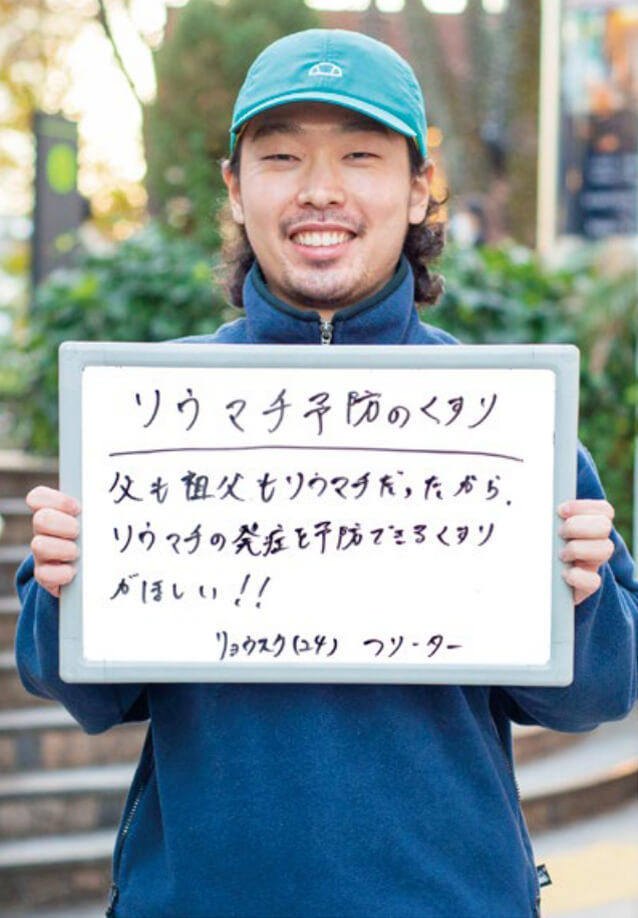 リウマチ予防のくすり
父も祖父もリウマチだったから、
リウマチの発症を予防できるくすり
がほしい!!
リョウスケ(24) フリーター